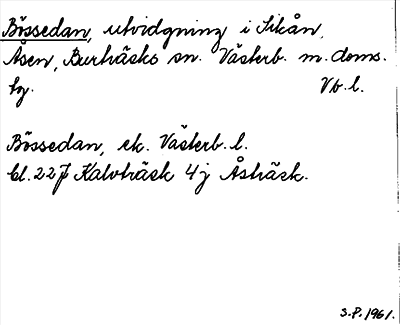 Bössedan, utvidgning i Sikån,
Åsen, Burträsks sn. Västerb. m. doms.
sg. Vb. l.
Bössedan, ek. Västerb. l.
bl. 22J Kalvträsk 4j Åsträsk.
S.P. 1961.